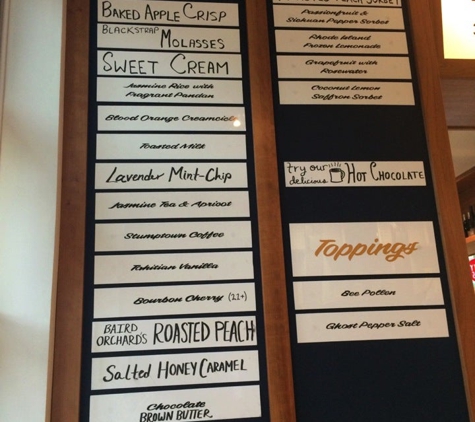 BAKED APPLE CRISP
BLACKSTRAP
MOLASSES
SWEET CREAM
Jasmine Rice with
Fragrant Pandan
Blood Orange Creamcicle
Toasted Milk
Lavender Mint-Chip
Jasmine Tea & Apricot
Stumptown Coffee
Tahitian Vanilla
Bourbon Cherry (21+)
BAIRD
ORCHARD'S ROASTED PEACH
Salted HONEY CARAMEL
Chocolate
BROWN BUTTER
Passionfruit &
Sichuan Pepper Sorbet
Rhode Island
Frozen Lemonade
Grapefruit with
Rosewater
Coconut Lemon
Saffron Sorbet
try our
delicious HOT CHOCOLATE
Toppings
Bee Pollen
Ghost Pepper Salt